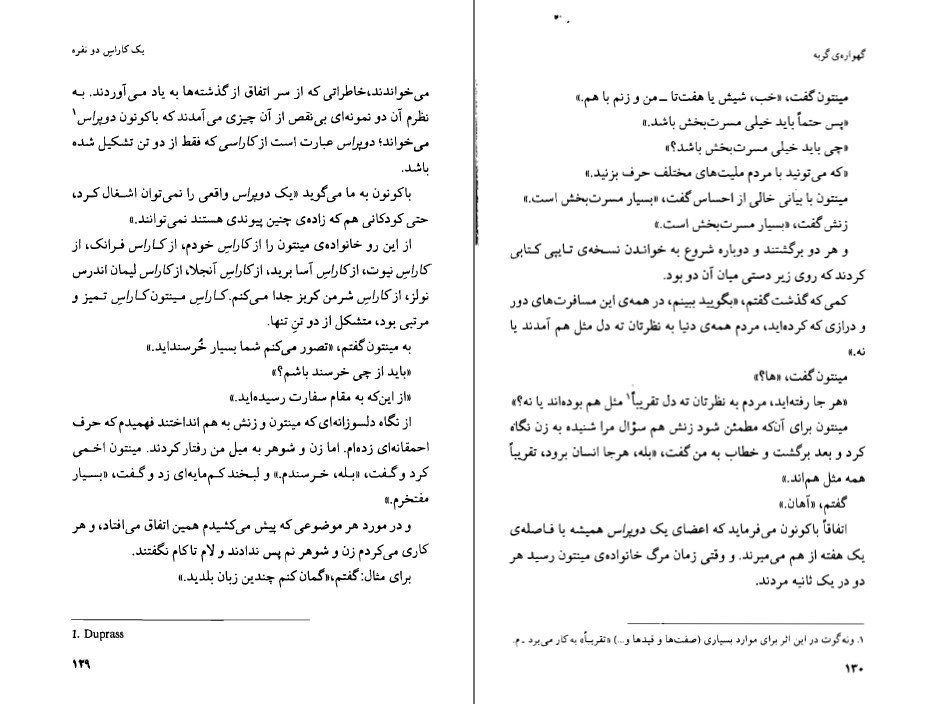 یک کاراسِ دو نفره
می‌خواندند، خاطراتی که از سر اتفاق از گذشته‌ها به یاد می‌آوردند. به
نظرم آن دو نمونه‌ای بی‌نقص از آن چیزی می‌آمدند که باکونون دوپراس۱
می‌خواند؛ دوپراس عبارت است از کاراسی که فقط از دو تن تشکیل شده
باشد.
باکونون به ما می‌گوید «یک دوپراس واقعی را نمی‌توان اشغال کرد،
حتی کودکانی هم که زاده‌ی چنین پیوندی هستند نمی‌توانند.»
از این رو خانواده‌ی مینتون را از کاراسِ خودم، از کاراس فرانک، از
کاراسِ نیوت، از کاراسِ آسا برید، از کاراسِ آنجلا، از کاراس لیمان اندرس
نولز، از کاراسِ شرمن کربز جدا می‌کنم. کاراسِ مینتون کاراسِ تمیز و
مرتبی بود، متشکل از دو تنِ تنها.
به مینتون گفتم، «تصور می‌کنم شما بسیار خُرسنداید.»
«باید از چی خرسند باشم؟»
«از این‌که به مقام سفارت رسیده‌اید.»
از نگاه دلسوزانه‌ای که مینتون و زنش به هم انداختند فهمیدم که حرف
احمقانه‌ای زده‌ام. اما زن و شوهر به میل من رفتار کردند. مینتون اخمی
کرد و گفت، «بله، خرسندم.» و لبخند کم‌مایه‌ای زد و گفت، «بسیار
مفتخرم.»
و در مورد هر موضوعی که پیش می‌کشیدم همین اتفاق می‌افتاد، و هر
کاری می‌کردم زن و شوهر نم پس ندادند و لام تا کام نگفتند.
برای مثال: گفتم،«گمان کنم چندین زبان بلدید.»
1. Duprass
۱۲۹
گهواره‌ی گربه
مینتون گفت، «خب، شیش یا هفت‌تا ـ من و زنم با هم.»
«پس حتماً باید خیلی مسرت‌بخش باشد.»
«چی باید خیلی مسرت‌بخش باشد؟»
«که می‌تونید با مردم ملیت‌های مختلف حرف بزنید.»
مینتون با بیانی خالی از احساس گفت، «بسیار مسرت‌بخش است.»
زنش گفت، «بسیار مسرت‌بخش است.»
و هر دو برگشتند و دوباره شروع به خواندن نسخه‌ی تایپی کتابی
کردند که روی زیر دستی میان آن دو بود.
کمی که گذشت گفتم، «بگویید ببینم، در همه‌ی این مسافرت‌های دور
و درازی که کرده‌اید، مردم همه‌ی دنیا به نظرتان ته دل مثل هم آمدند یا
نه.»
مینتون گفت، «ها؟»
«هر جا رفته‌اید، مردم به نظرتان ته دل تقریباً۱ مثل هم بوده‌اند یا نه؟»
مینتون برای آن‌که مطمئن شود زنش هم سؤال مرا شنیده به زن نگاه
کرد و بعد برگشت و خطاب به من گفت، «بله، هرجا انسان برود، تقریباً
همه مثل هم‌اند.»
گفتم، «آهان.»
اتفاقاً باکونون می‌فرماید که اعضای یک دوپراس همیشه با فاصله‌ی
یک هفته از هم می‌میرند. و وقتی زمان مرگ خانواده‌ی مینتون رسید هر
دو در یک ثانیه مردند.
۱. ونه‌گرت در این اثر برای موارد بسیاری (صفت‌ها و قیدها و...) «تقریباً» به کار می‌برد ـ م.
۱۳۰